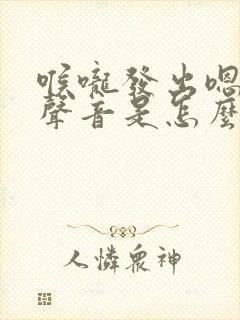 喉嚨發出嗯
聲音是怎麼
人憐眾神